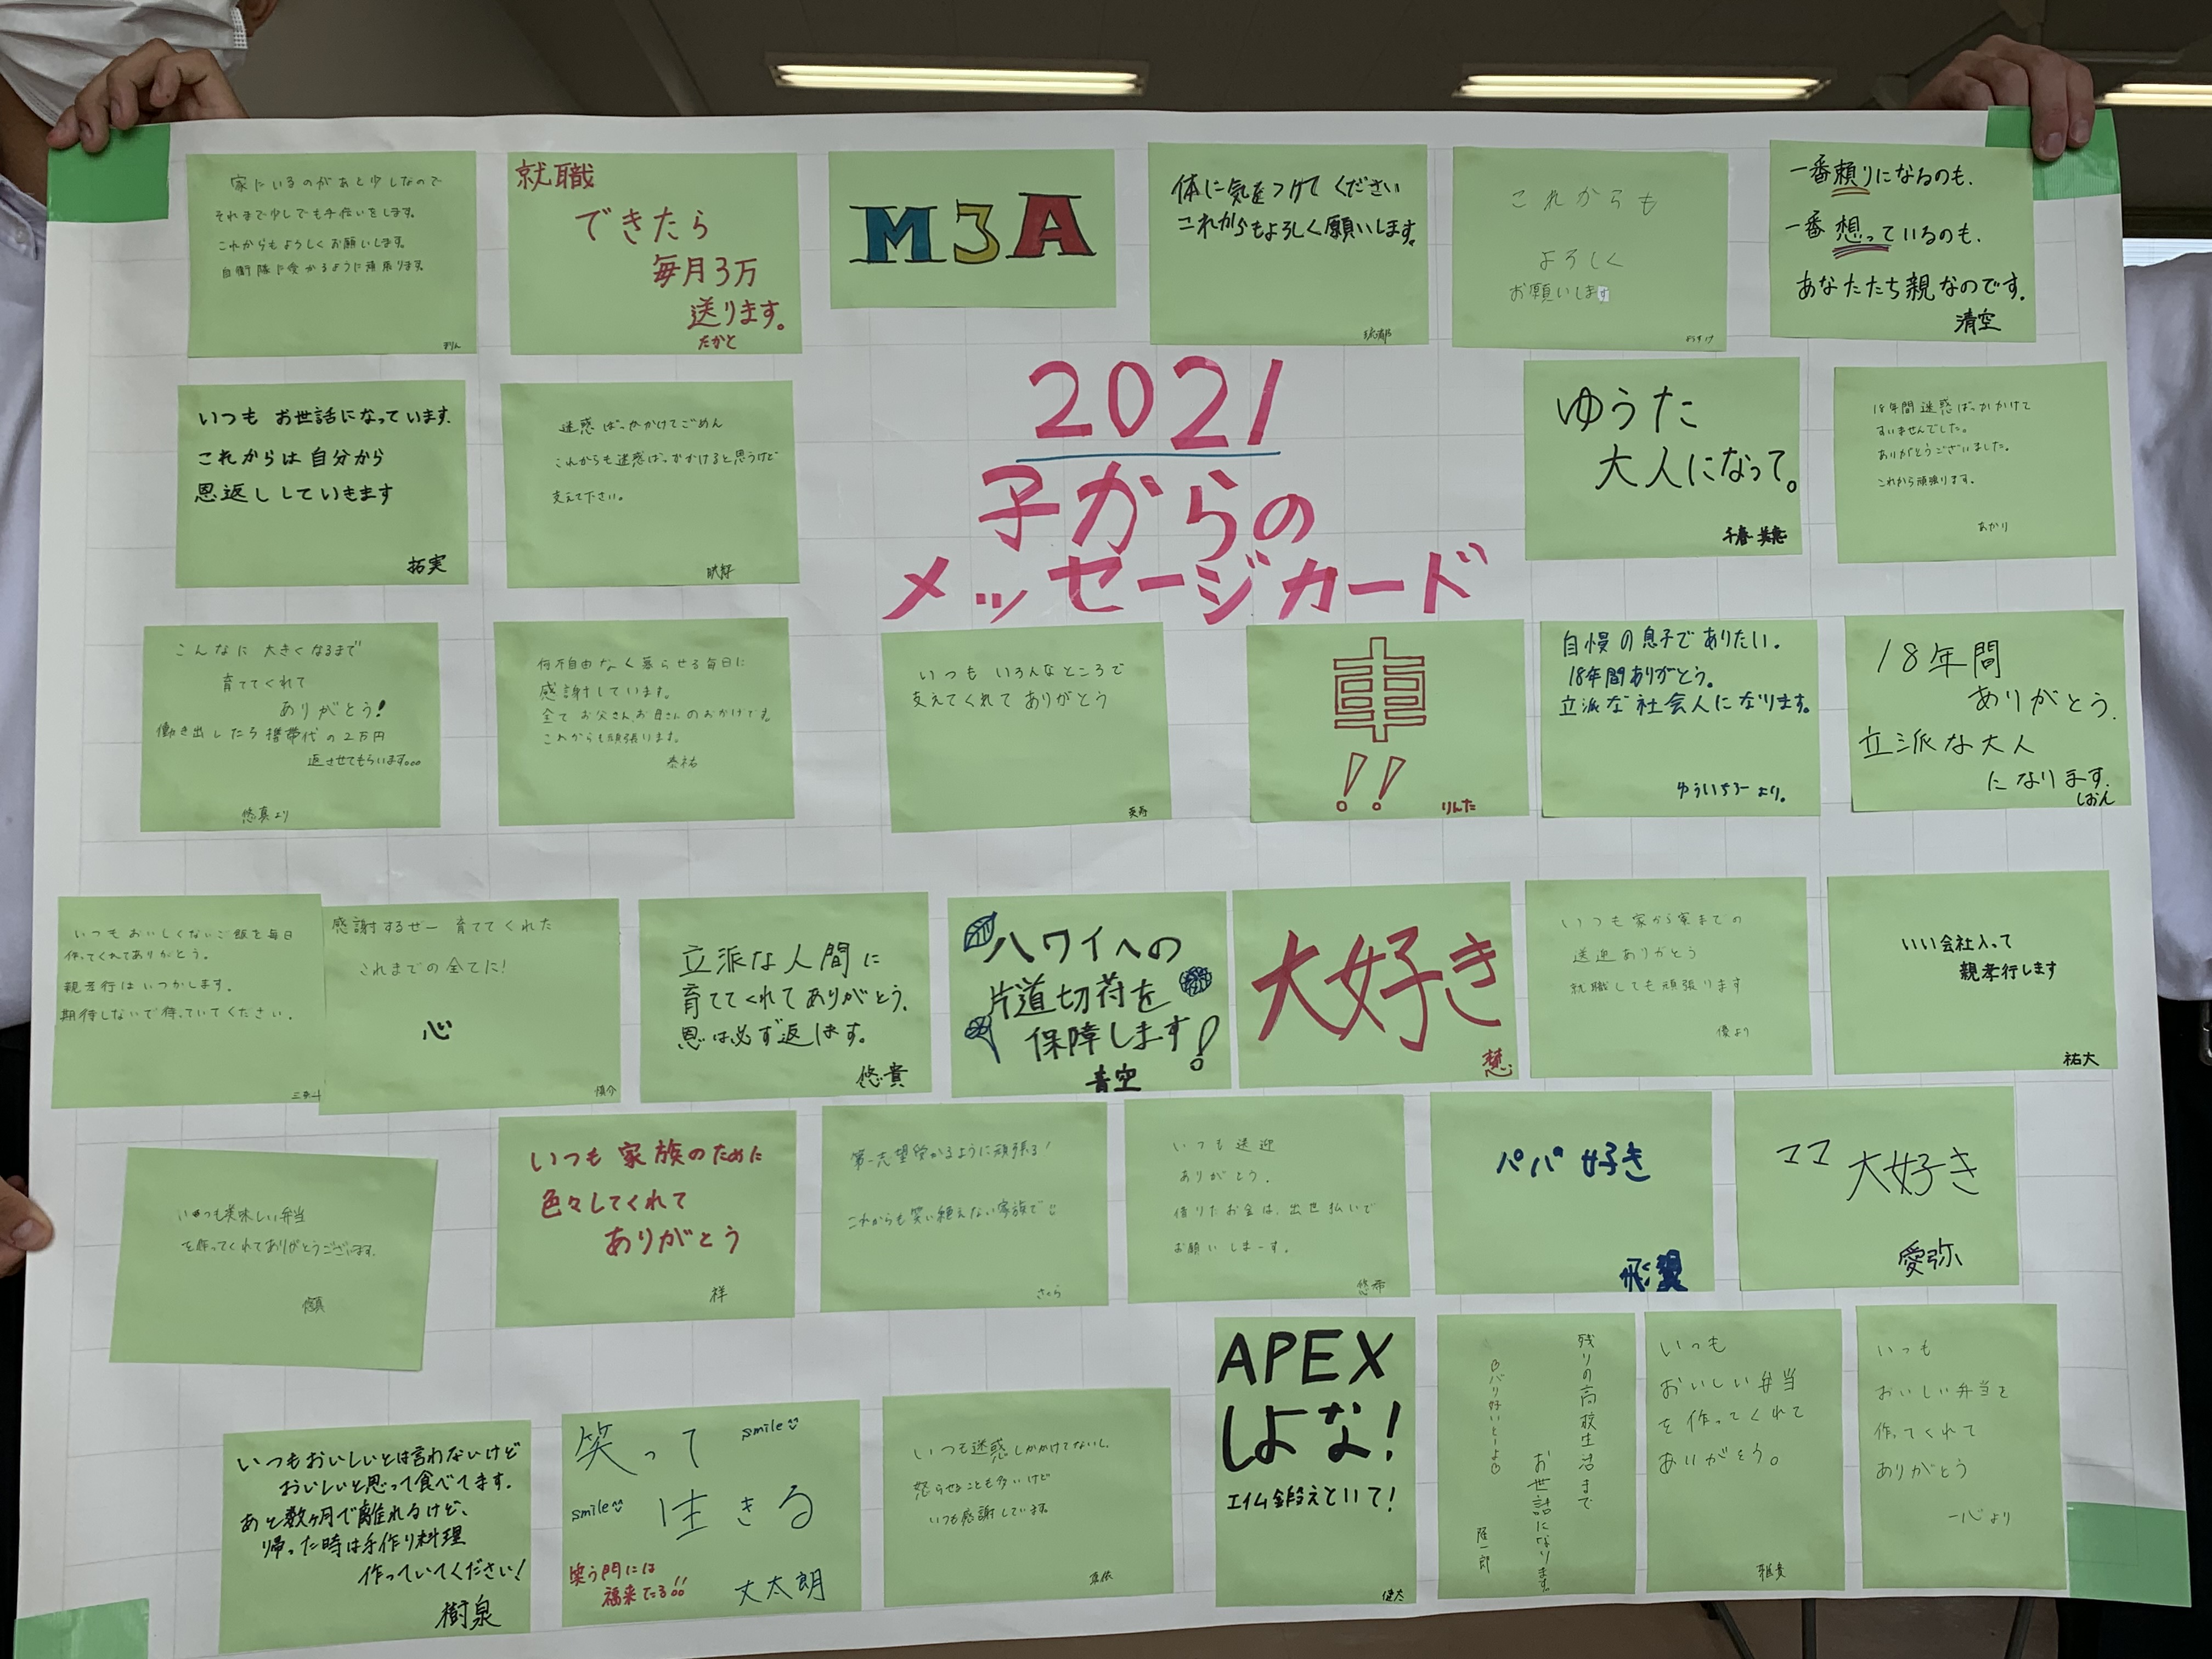 家にいるのがあと少しなので
それまで少しでも手伝いをします。
これからもよろしくお願いします。
自衛隊に受かるように頑張ります。
まりん
就職
できたら
毎月3万
送ります。
たかと
M3A
体に気をつけてください
これからもよろしく願いします。
これからも
よろしく
お願いします
一番頼りになるのも、
一番想っているのも、
あなたたち親なのです。
清空
2021
子からの
メッセージカード
いつもお世話になっています。
これからは自分から
恩返ししていきます
拓実
迷惑ばっかかけてごめん
これからも迷惑ばっかかけると思うけど
支えて下さい。
ゆうた
大人になって。
18年間迷惑ばっかかけて
すいませんでした。
ありがとうございました。
これから頑張ります。
あかり
こんなに大きくなるまで
育ててくれて
ありがとう!
働き出したら携帯代の2万円
返させてもらいます。。。
悠真より
何不自由なく暮らせる毎日に
感謝しています。
全てお父さん、お母さんのおかげです。
これからも頑張ります。
泰祐
いつもいろんなところで
支えてくれてありがとう
車
!!
りんた
自慢の息子でありたい.
18年間ありがとう。
立派な社会人になります。
ゆういちろーより。
18年間
ありがとう.
立派な大人
になります.
しおん
いつもおいしくないご飯を毎日
作ってくれてありがとう。
親孝行はいつかします。
期待しないで待っていてください。
感謝するぜー 育ててくれた
これまでの全てに!
心
慎介
立派な人間に
育ててくれてありがとう。
恩は必ず返します。
悠貴
ハワイへの
片道切符を
保障します!
青空
大好き
慧
いつも家から寮までの
送迎ありがとう
就職しても頑張ります
優より
いい会社入って
親孝行します
祐大
いつも美味しい弁当
を作ってくれてありがとうございます。
いつも家族のために
色々してくれて
ありがとう
祥
第一志望受かるように頑張る!
これからも笑い絶えない家族で
さくら
いつも送迎
ありがとう.
借りたお金は、出世払いで
お願いしまーす.
悠希
パパ好き
飛翼
ママ大好き
愛弥
いつもおいしいとは言わないけど
おいしいと思って食べてます。
あと数ヶ月で離れるけど、
帰った時は手作り料理
作っていてください!
樹泉
笑って smile
smile 生きる
笑う門には
福来たる!!
丈太朗
いつも迷惑しかかけてないし、
怒らせることも多いけど
いつも感謝しています。
APEX
しよな!
エイム鍛えといて!
健太
残りの高校生活まで
お世話になります。
バリ好いとーよ
隆一郎
いつも
おいしい弁当
を作ってくれて
ありがとう。
雅貴
いつも
おいしい弁当を
作ってくれて
ありがとう
一心より